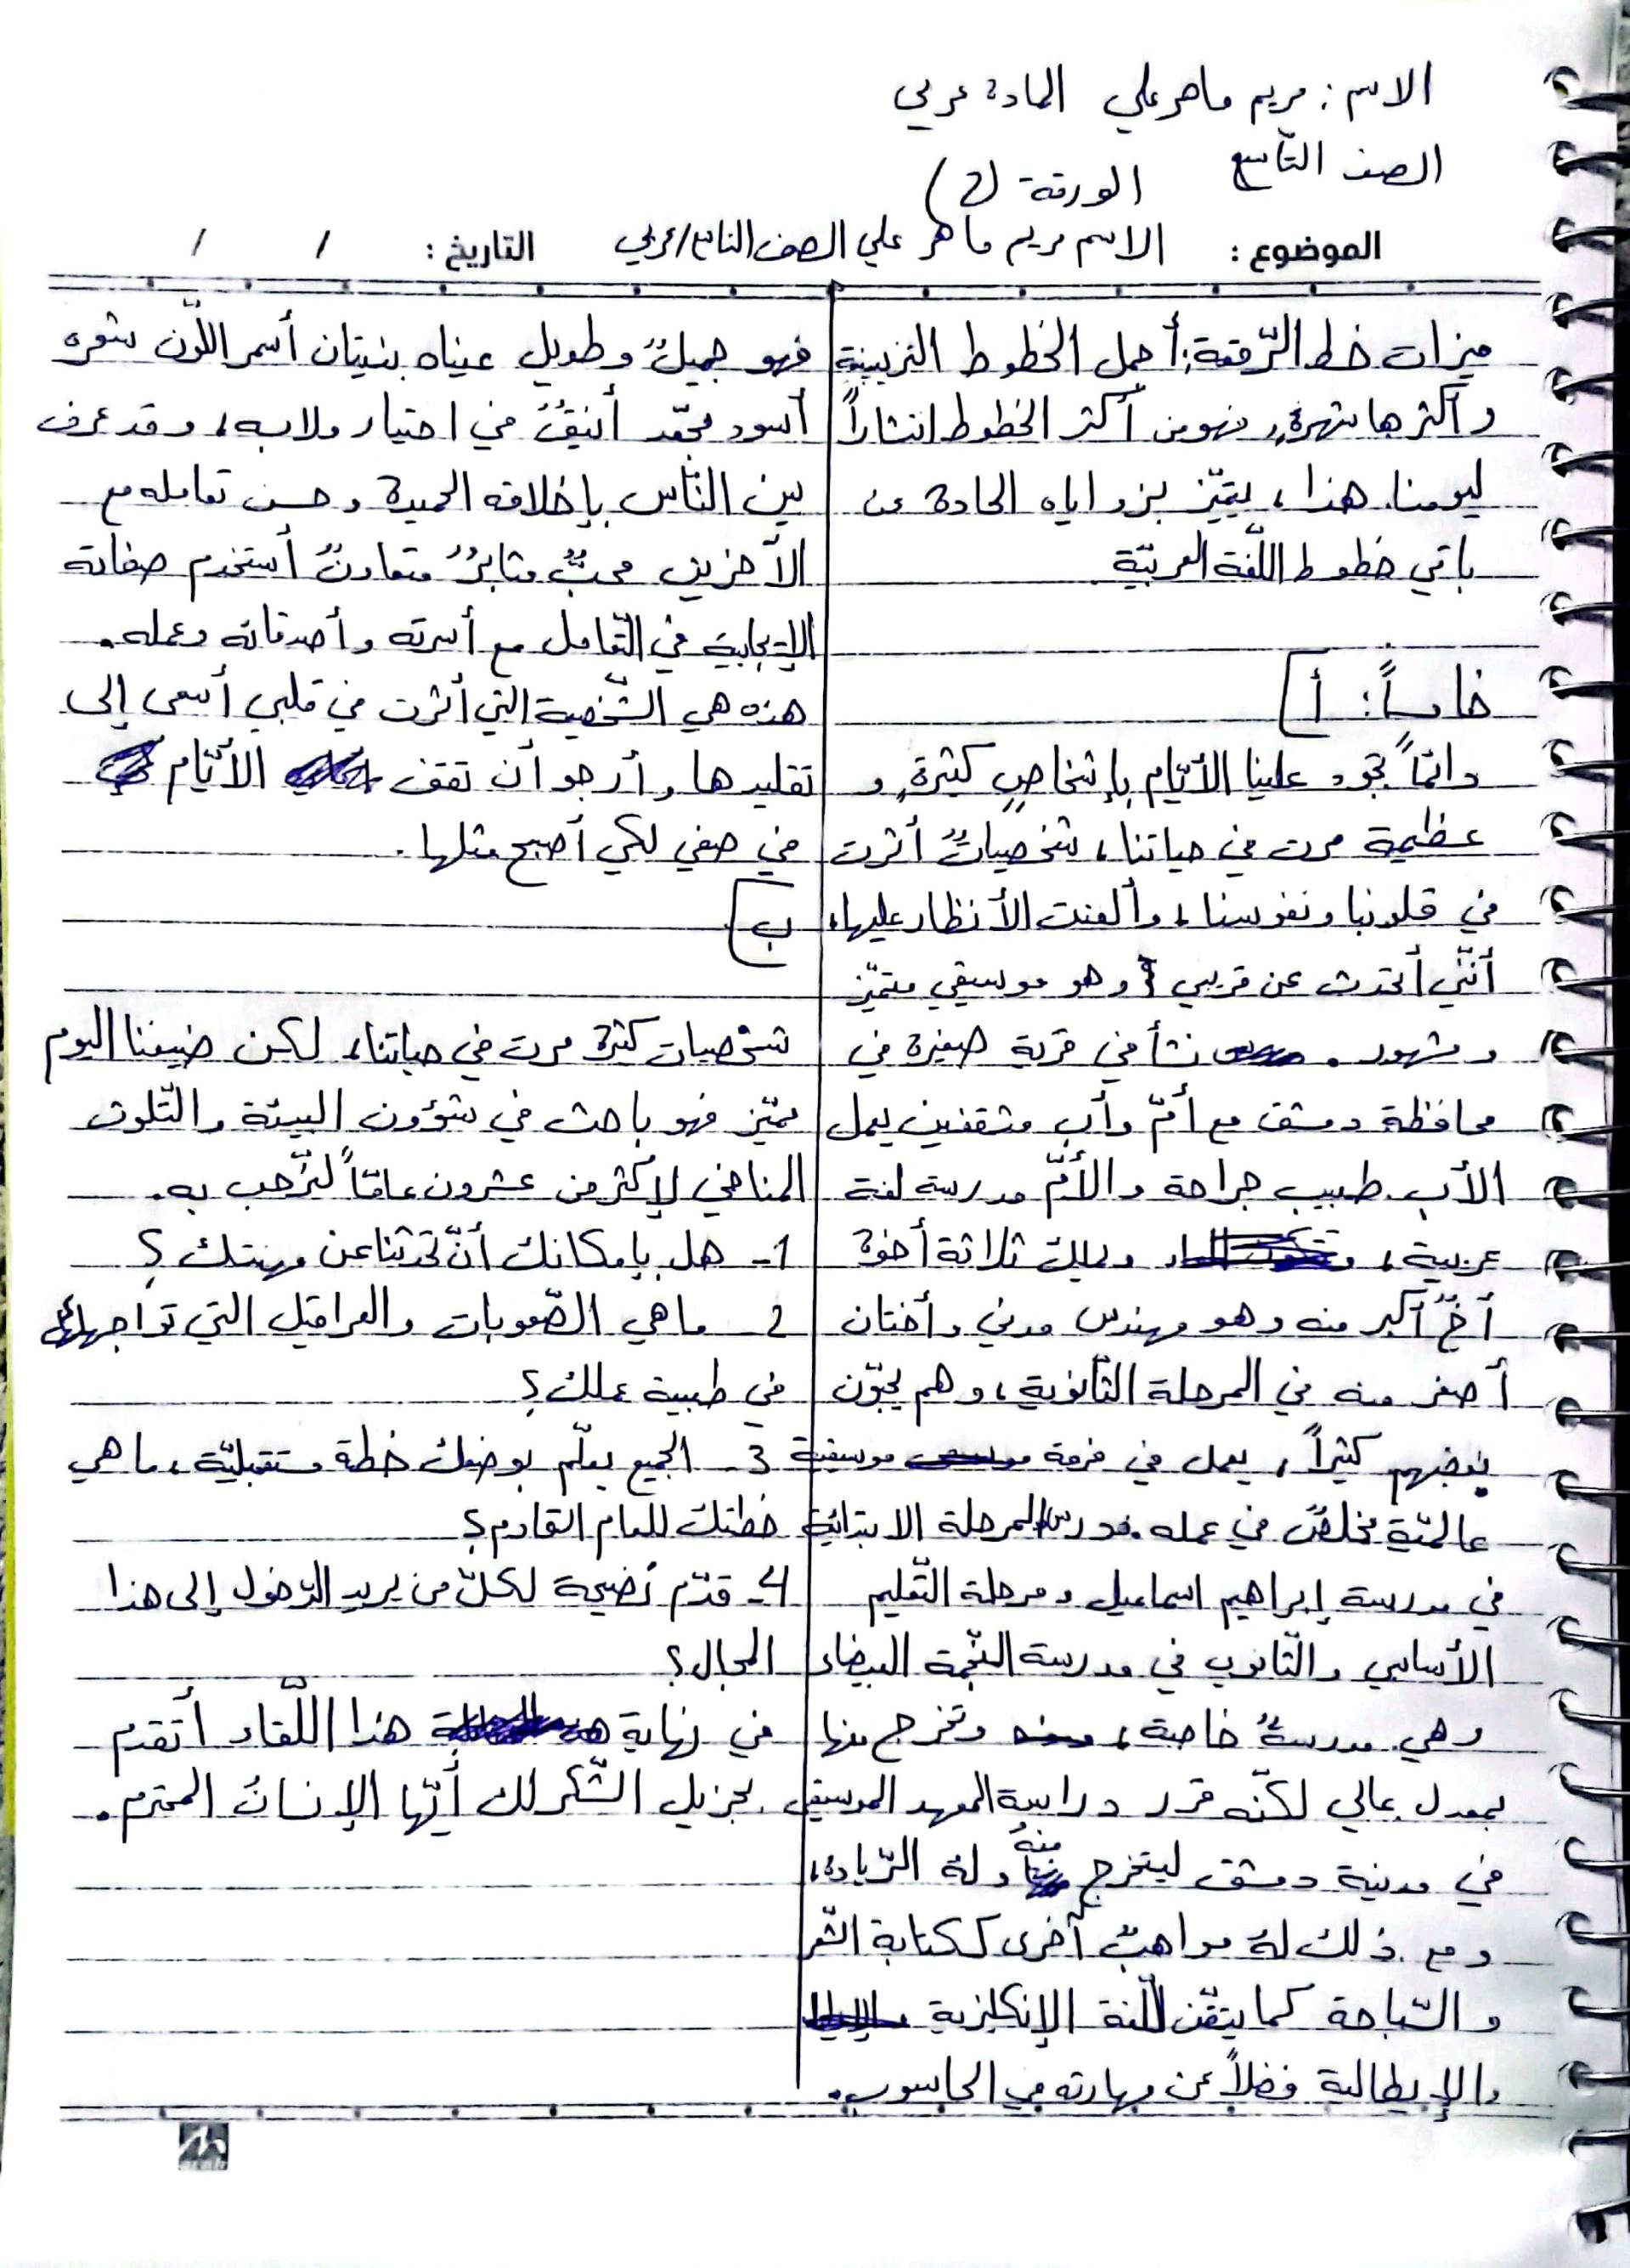 الاسم : مريم ماهر علي المادة عربي
الصف التّاسع الورقة (2)
الموضوع : الاسم مريم ماهر علي الصف التاسع/عربي التاريخ : / /
ميزات خط الرّقعة: أجمل الخطوط التزيينية
وأكثرها شهرةً، فهو من أكثر الخطوط انتشاراً
ليومنا هذا، يتميّز بزواياه الحادة عن
باقي خطوط اللّغة العربيّة
خامساً: أ]
دائماً تجود علينا الأيّام بإشخاصٍ كثيرةٍ، و
عظيمة مرت في حياتنا، شخصياتٌ أثرت
في قلوبنا ونفوسنا، وألفت الأنظار عليها،
أنّني أتحدث عن قريبي وهو موسيقي متميّز
ومشهور. نشأ في قرية صغيرة في
محافظة دمشق مع أمّ وأب مثقفين يعمل
الأب طبيب جراحة والأمّ مدرسة لغة
عربية، ويملك ثلاثة أخوة
أخٌ أكبر منه وهو مهندس مدني وأختان
أصغر منه في المرحلة الثّانوية، وهم يحبّون
بعضهم كثيراً، يعمل في فرقة موسيقية
عالميّة مخلصٌ في عمله. درس المرحلة الابتدائية
في مدرسة إبراهيم اسماعيل ومرحلة التّعليم
الأساسي والثّانوي في مدرسة النّجمة البيضاء
وهي مدرسةٌ خاصة، وتخرج منها
بمعدل عالي لكنّه قرر دراسة المعهد الموسيقي
في مدينة دمشق ليتخرج منهُ ولهُ الرّيادة،
ومع ذلك لهُ مواهبٌ أخرى ككتابة الشّعر
والسّباحة كما يتقن اللّغة الإنكليزية
والإيطالية فضلاً عن مهارته في الحاسوب.
فهو جميلٌ وطويل عيناه بنيتان أسمر اللّون شعره
أسود مجعّد أنيقٌ في اختيار ملابسه، وقد عرف
بين النّاس بإخلاقه الحميدة وحسن تعامله مع
الآخرين محبٌّ مثابرٌ متعاونٌ أستخدم صفاته
الإيجابية في التّعامل مع أسرته وأصدقائه وعمله.
هذه هي الشّخصية التي أثرت في قلبي أسعى إلى
تقليدها وأرجو أن تقف الأيّام
في صفي لكي أصبح مثلها.
ب]
شخصيات كثيرة مرت في حياتنا، لكن ضيفنا اليوم
مميّز فهو باحث في شؤون البيئة والتّلوث
المناخي لإكثر من عشرون عامّاً لنرّحب به.
1- هل بإمكانك أنّ تحدثنا عن مهنتك؟
2- ما هي الصّعوبات والعراقيل التي تواجهك
في طبيعة عملك؟
3- الجميع يعلّم بوضعك خطة مستقبليّة، ما هي
خطتك للعام القادم؟
4- قدّم نصيحة لكلّ من يريد الدّخول إلى هذا
المجال؟
في نهاية هذا اللّقاء أتقدم
بجزيل الشّكر لك أيّها الإنسانُ المحترم.